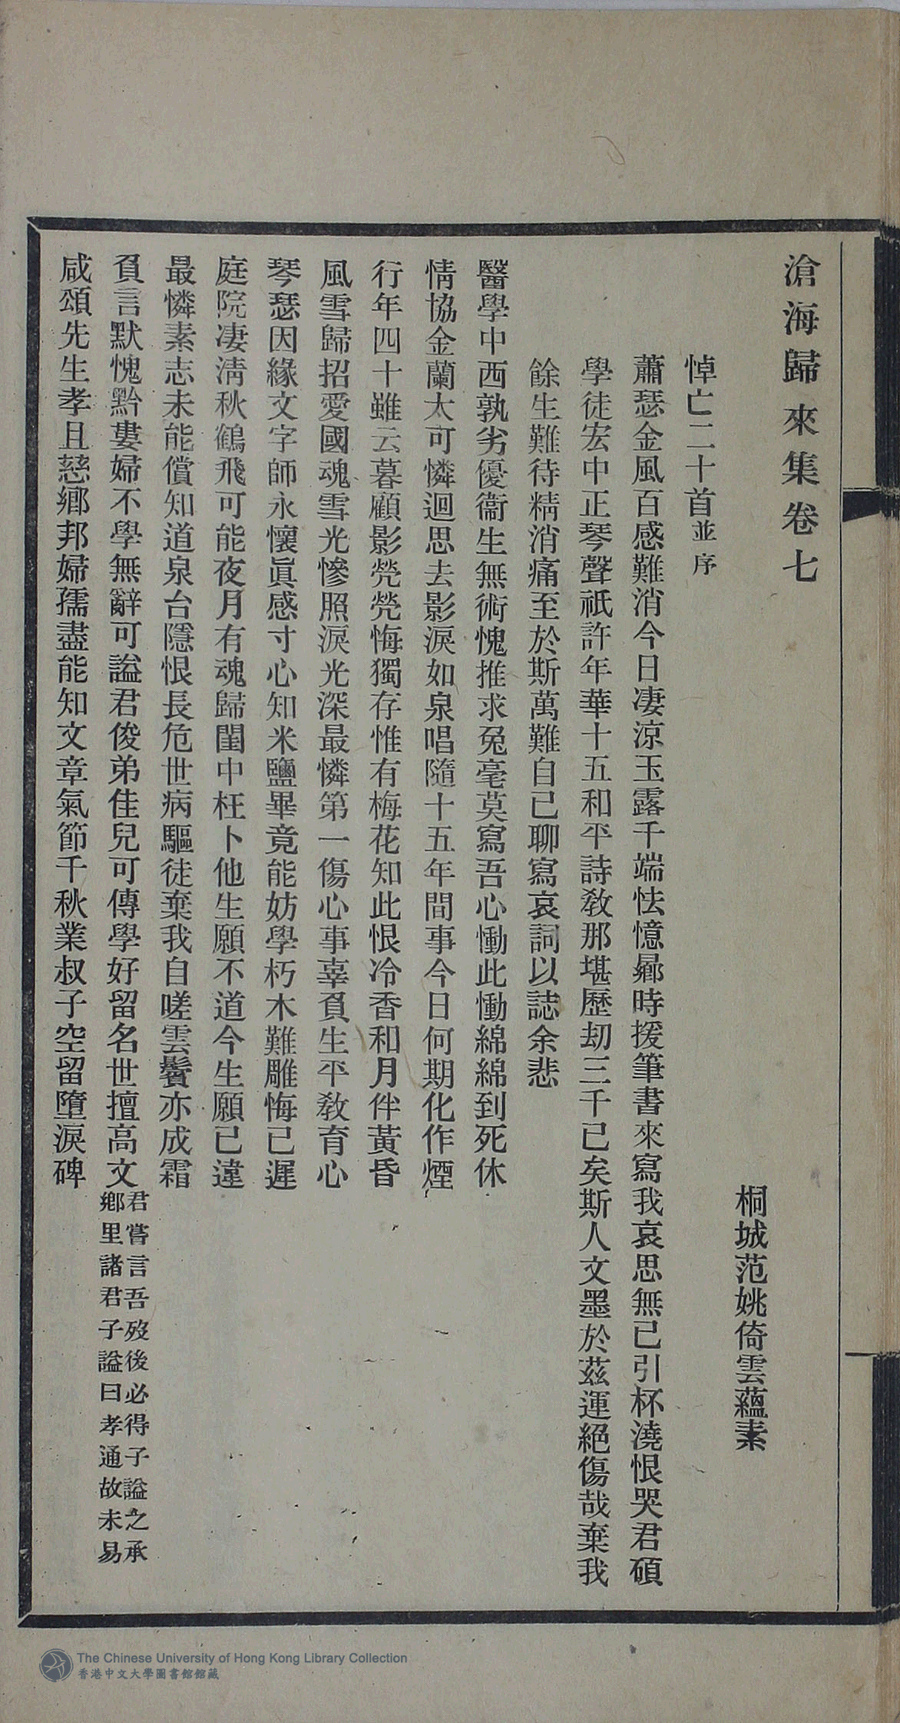 滄海歸來集卷七
桐城范姚倚雲蘊素
悼亡二十首並序
蕭瑟金風百感難消今日凄涼玉露千端怯憶曏時援筆書來寫我哀思無已引杯澆恨哭君碩
學徒宏中正琴聲祇許年華十五和平詩敎那堪歷劫三千已矣斯人文墨於茲運絕傷哉棄我
餘生難待精消痛至於斯萬難自已聊寫哀詞以誌余悲
醫學中西孰劣優衞生無術愧推求兔毫莫寫吾心慟此慟綿綿到死休
情協金蘭太可憐迴思去影淚如泉唱隨十五年間事今日何期化作煙
行年四十雖云暮顧影煢煢悔獨存惟有梅花知此恨冷香和月伴黃昏
風雪歸招愛國魂雪光慘照淚光深最憐第一傷心事辜負生平敎育心
琴瑟因緣文字師永懷眞感寸心知米鹽畢竟能妨學朽木難雕悔已遲
庭院凄淸秋鶴飛可能夜月有魂歸閨中枉卜他生願不道今生願已違
最憐素志未能償知道泉台隱恨長危世病驅徒棄我自嗟雲鬢亦成霜
負言默愧黔婁婦不學無辭可謚君俊弟佳兒可傳學好留名世擅高文君嘗言吾歿後必得子謚之承鄕里諸君子謚曰孝通故未易
咸頌先生孝且慈鄕邦婦孺盡能知文章氣節千秋業叔子空留墮淚碑
The Chinese University of Hong Kong Library Collection
香港中文大學圖書館館藏